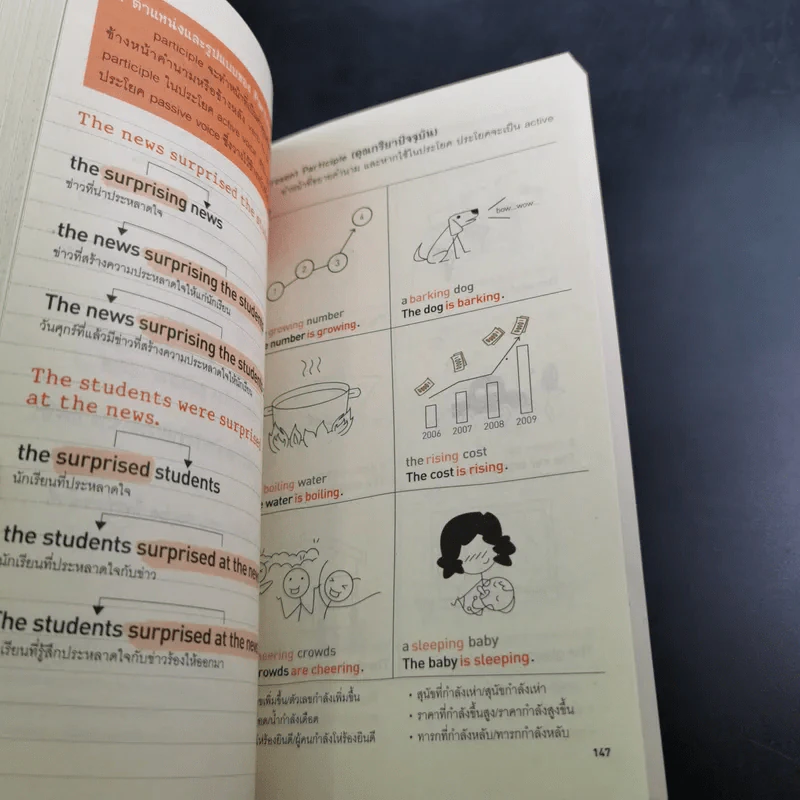 ตำแหน่งและรูปแบบของ
participle จะทำหน้าที่
ข้างหน้าคำนามหรือข้างหลัง
participle ในประโยค active voice
ประโยค passive voice ซึ่ง
The news surprised the
the surprising news
ข่าวที่น่าประหลาดใจ
the news surprising the students
ข่าวที่สร้างความประหลาดใจให้แก่นักเรียน
The news surprising the students
วันศุกร์ที่แล้วมีข่าวที่สร้างความประหลาดใจให้นักเรียน
The students were surprised
at the news.
the surprised students
นักเรียนที่ประหลาดใจ
the students surprised at the new
นักเรียนที่ประหลาดใจกับข่าว
The students surprised at the new
เรียนที่รู้สึกประหลาดใจกับข่าวร้องให้ออกมา
resent Participle (คุณกริยาปัจจุบัน)
ทำหน้าที่ขยายคำนาม และหากใช้ในประโยค ประโยคจะเป็น active
1
2
3
4
growing number
number is growing.
bow...wow...
a barking dog
The dog is barking.
boiling water
water is boiling.
2006
2007
2008
2009
the rising cost
The cost is rising.
eering crowds
rowds are cheering.
a sleeping baby
The baby is sleeping.
ขเพิ่มขึ้น/ตัวเลขกำลังเพิ่มขึ้น
อด/น้ำกำลังเดือด
โห่ร้องยินดี/ผู้คนกำลังโห่ร้องยินดี
• สุนัขที่กำลังเห่า/สุนัขกำลังเห่า
• ราคาที่กำลังขึ้นสูง/ราคากำลังสูงขึ้น
• ทารกที่กำลังหลับ/ทารกกำลังหลับ
147